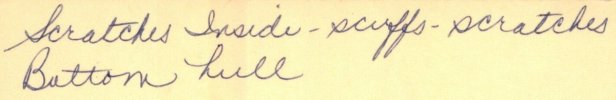 Scratches Inside - scuffs - scratches
Bottom hull